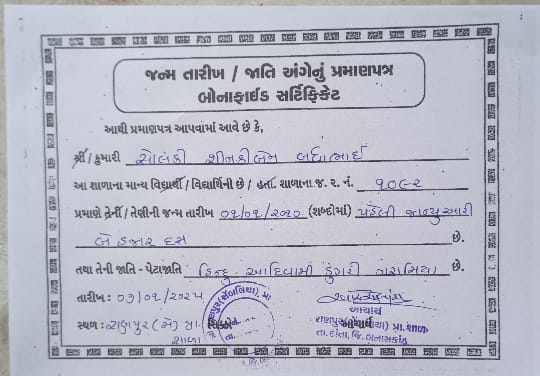 જન્મ તારીખ / જાતિ અંગેનું પ્રમાણપત્ર
બોનાફાઈડ સર્ટિફિકેટ
આથી પ્રમાણપત્ર આપવામાં આવે છે કે,
શ્રી/ કુમારી સોલંકી બધાભાઈ
આ શાળાના માન્ય વિદ્યાર્થી / વિદ્યાર્થિની છે / હતા. શાળાના જ. ર. નં. ૧૦૯૨
પ્રમાણે તેની / તેણીની જન્મ તારીખ ૦૧/૦૧/૨૦૧૦ (શબ્દોમાં) પહેલી જાન્યુઆરી
બે હજાર દસ છે.
તથા તેની જાતિ - પેટાજાતિ હિન્દુ આદિવાસી ડુંગરી ગરાસિયા છે.
તારીખ : ૦૭/૦૧/૨૦૨૫
આચાર્ય
સ્થળ : રાણપુર
આચાર્ય પ્રા. શાળા
શાળા
તા. દાંતા, જિ. બનાસકાંઠા